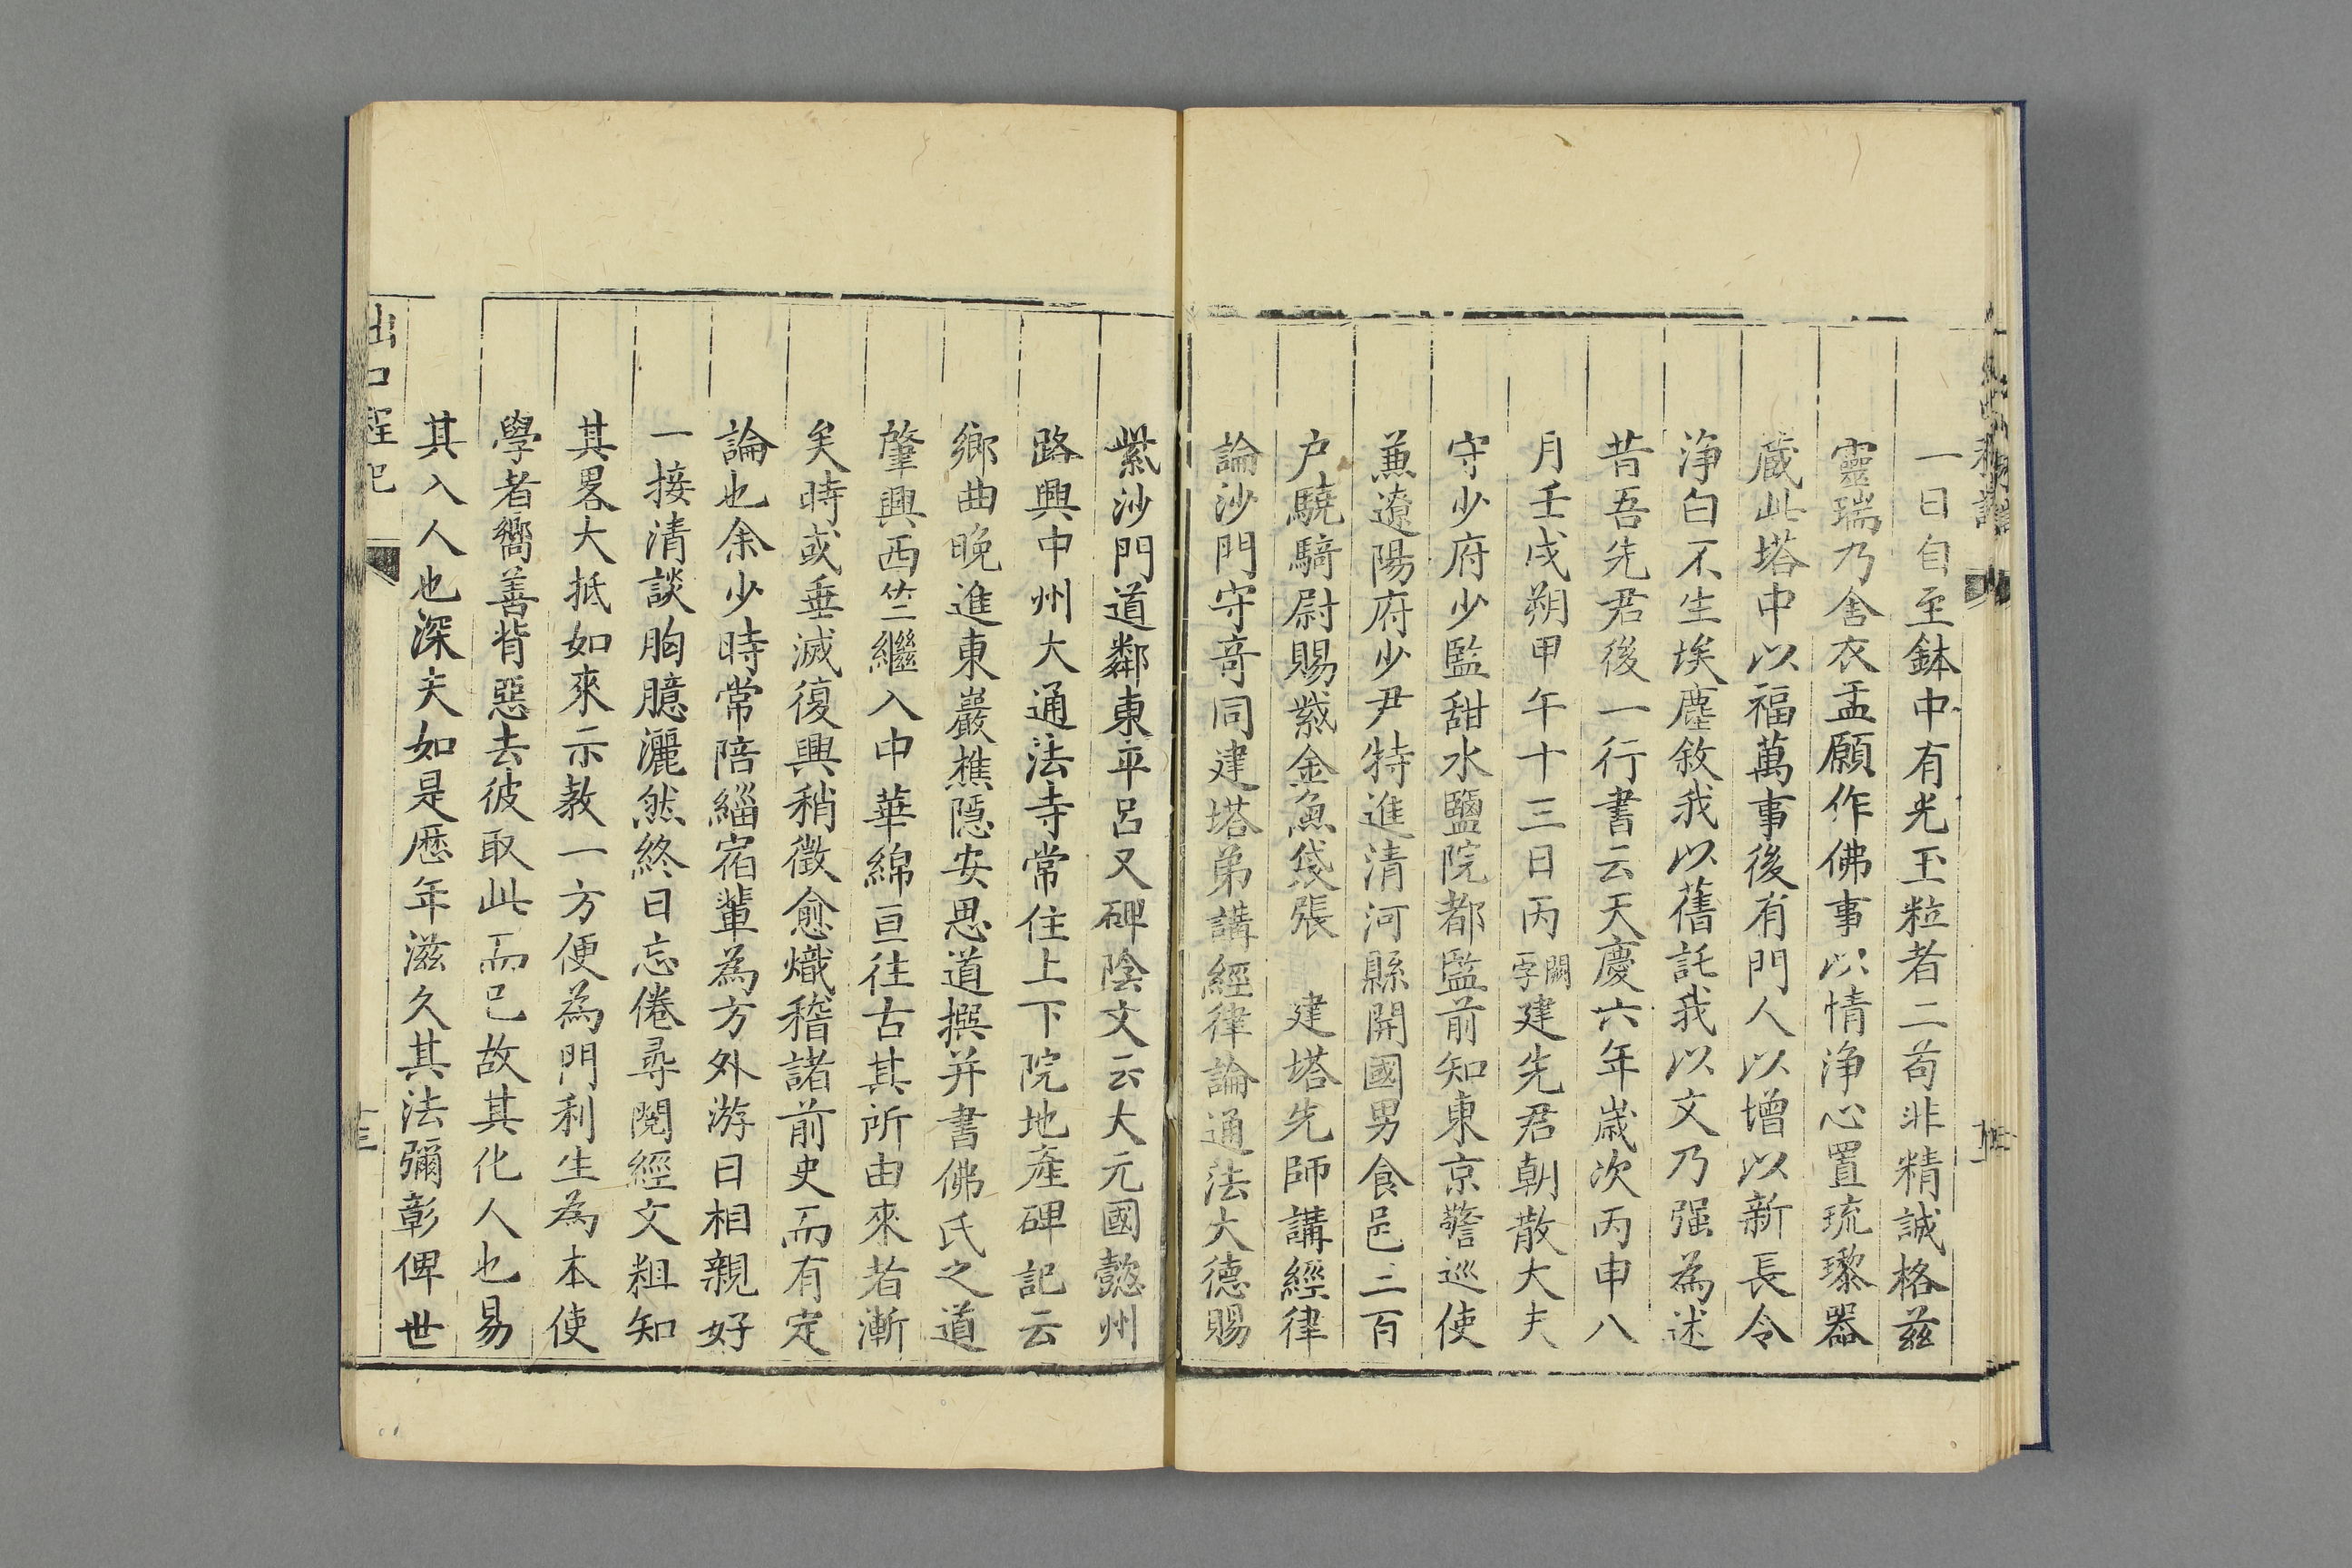 一日自至鉢中有光玉粒者二苟非精誠格兹
靈瑞乃舍衣盂願作佛事以情浄心置琉瓈器
蔵此塔中以福萬事後有門人以增以新長令
浄白不生埃塵敘我以舊託我以文乃强為述
昔吾先君後一行書云天慶六年歳次丙申八
月壬戌朔甲午十三日丙闕字建先君朝散大夫
守少府少監甜水鹽院都監前知東京警巡使
兼遼陽府少尹特進清河縣開國男食邑三百
户驍騎尉賜紫金魚袋張 建塔先師講經律
論沙門守竒同建塔弟講經律論通法大德賜
紫沙門道鄰東平呂又碑陰文云大元國懿州
路興中州大通法寺常住上下院地産碑記云
鄉曲晚進東巖樵隱安思道撰并書佛氏之道
肇興西竺繼入中華綿亘往古其所由來若漸
矣時或垂滅復興稍徵愈熾稽諸前史而有定
論也余少時常陪緇宿輩為方外游日相親好
一接清談胸臆灑然終日忘倦尋閱經文粗知
其畧大抵如來示教一方便為門利生為本使
學者嚮善背惡去彼取此而已故其化人也易
其入人也深夫如是歷年滋久其法彌彰俾世
出口程记